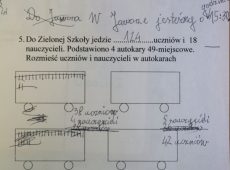 Do Jawora W Jaworze jesteśmy o 15:30
5. Do Zielonej Szkoły jedzie ...144...uczniów i 18
nauczycieli. Podstawiono 4 autokary 49-miejscowe.
Rozmieść uczniów i nauczycieli w autokarach
38 uczniów
5 nauczycieli
42 uczniów